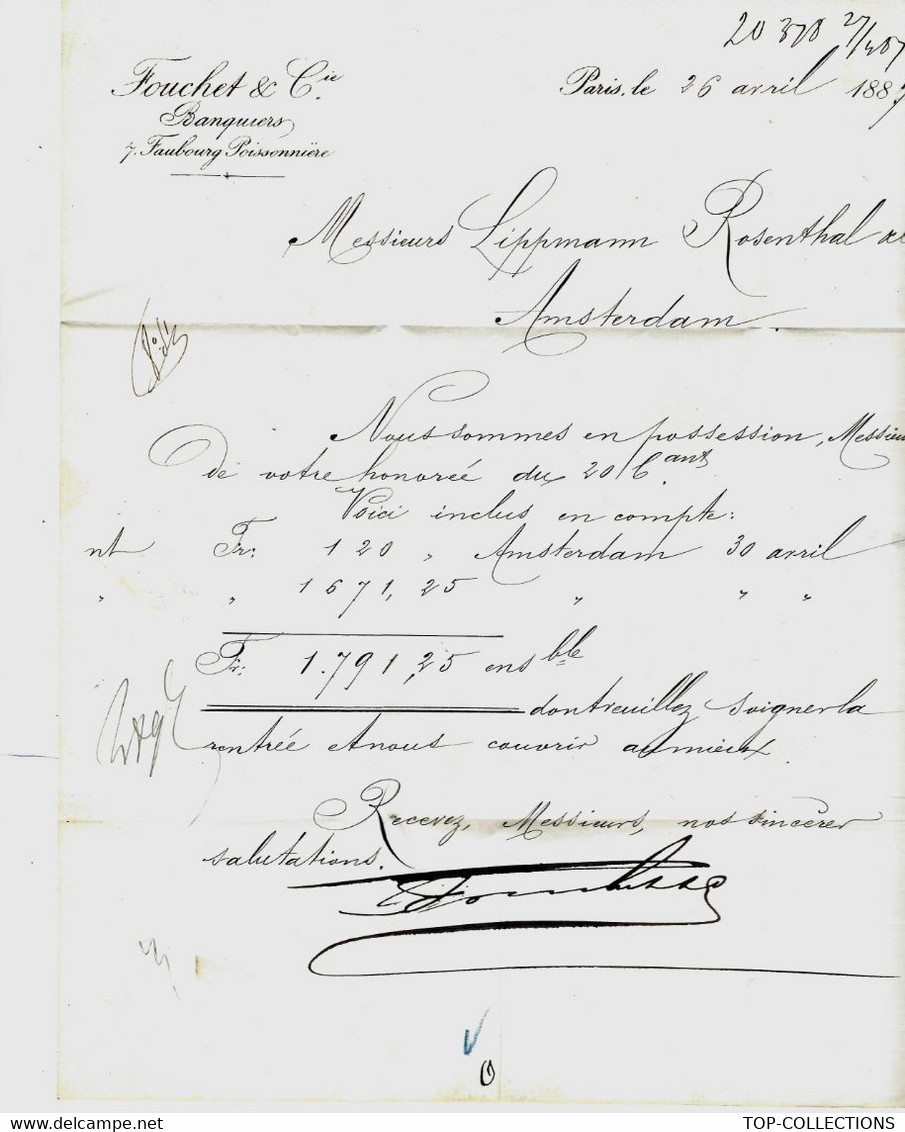 20 378 27/4 87
Fouchet & Cie.
Banquiers
7. Faubourg Poissonnière
Paris, le 26 avril 1887
Messieurs Lippmann Rosenthal
Amsterdam.
Nous sommes en possession, Messieurs
de votre honorée du 20 Cant
Voici inclus en compte:
nt Fr: 120 " Amsterdam 30 avril
" " 1671,25 " " "
Fr: 1.791,25 ensble
dont veuillez soigner la
rentrée et nous couvrir au mieux.
Recevez, Messieurs, nos sincères
salutations.
TOP-COLLECTIONS